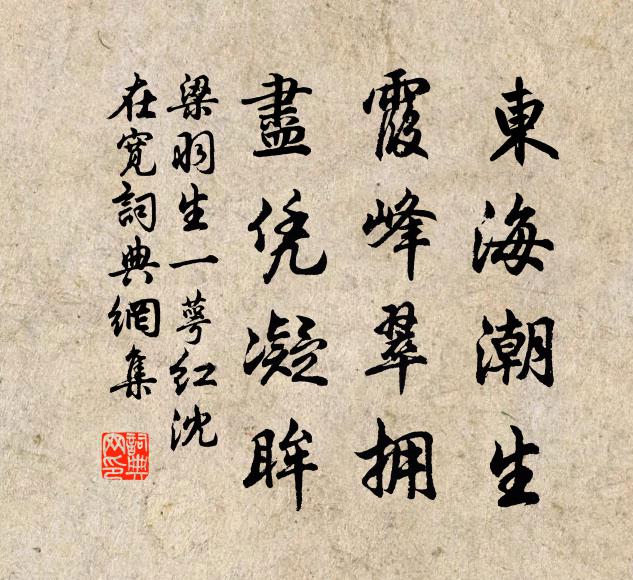 東海潮生
霞峰翠拥
盡凭凝眸
梁羽生一萼红沈
在寬詞典網集
詞典
网印